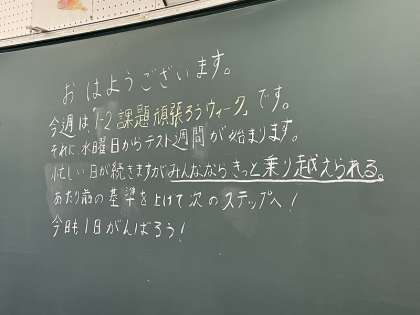 おはようございます。
今週は、「1-2 課題頑張ろうウィーク」です。
それに水曜日からテスト週間が始まります。
忙しい日が続きますがみんなならきっと乗り越えられる。
あたり前の基準を上げて次のステップへ!
今日も1日がんばろう!